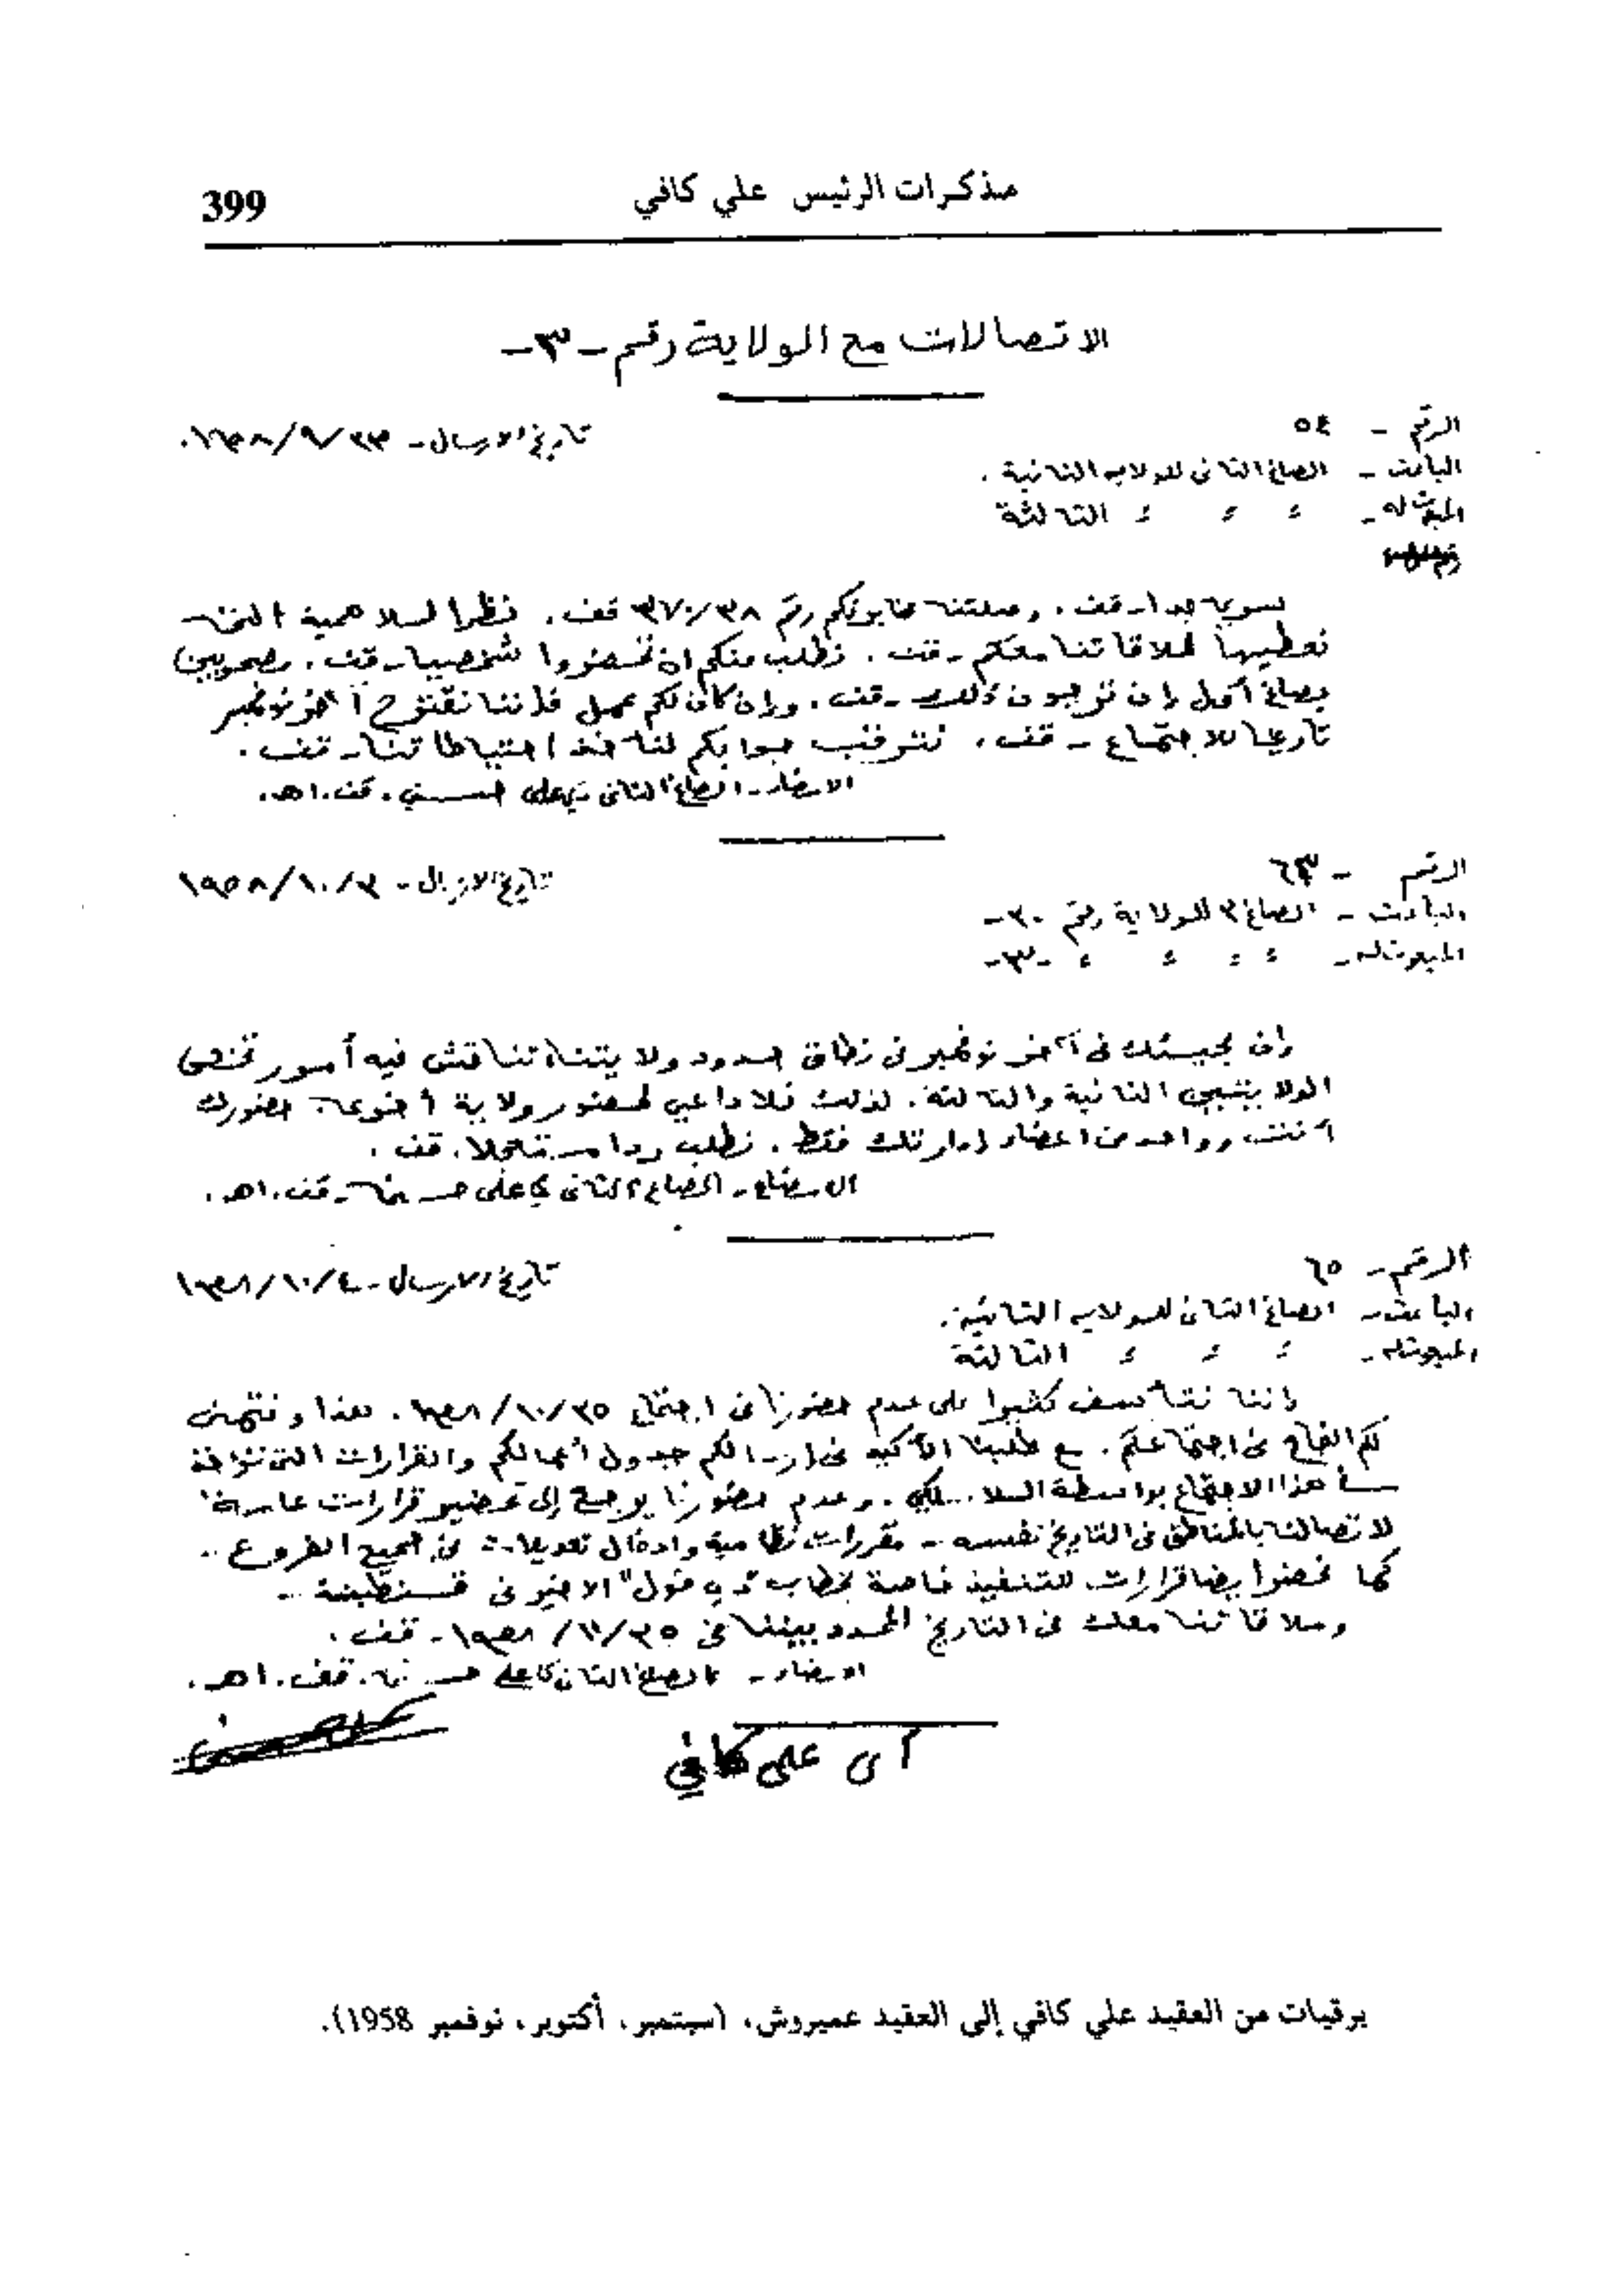 مذكرات الرئيس علي كافي
399
الاتصالات مع الولاية رقم -٣-
الرقم - ٥٤
تاريخ الارسال - ٢٣/٩/١٩٥٨.
الباعث - الصاغ الثاني للولاية الثانية.
المبعوث له - = = = الثالثة
سري جدا - قف. وصلتنا رقم ٣٨ قف. نظرا للاهمية التي
نعطيها لملاقاتنا معكم - قف. نطلب منكم ان تحضروا شخصيا - قف. مصحوبين
بصاغ أول إن توجبون ذلك - قف. وإن كان لكم عمل فإننا نقترح آخر نوفمبر
تاريخا للاجتماع - قف. نترقب جوابكم لنأخذ احتياطاتنا - قف.
الامضاء - الصاغ الثاني سي علي حسين. قف. اهـ.
الرقم - ٦٣
تاريخ الارسال - ٢/١٠/١٩٥٨
الباعث - الصاغ ٢ للولاية رقم -٢-
المبعوث له - = = = = -٣-
إن مجيئك في آخر نوفمبر في نطاق محدود ولا تناقش فيه أمور تختص
الولايتين الثانية والثالثة. لذلك فلا داعي لحضور ولاية أخرى. حضورك
أنت وواحد من اعضاء إدارتك فقط. نطلب ردا مستعجلا. قف.
الامضاء - الصاغ الثاني علي حسين - قف. اهـ.
الرقم - ٦٥
تاريخ الارسال - ٤/١٠/١٩٥٨
الباعث - الصاغ الثاني للولاية الثانية.
المبعوث له - = = = الثالثة
إننا نتأسف كثيرا على عدم حضورنا في اجتماع ٢٥/١٠/١٩٥٨. هذا ونتمنى
لكم النجاح في اجتماعكم. مع طلبنا الأكيد في ارسالكم جدول أعمالكم والقرارات التي
هذا الاجتماع بواسطة السلاسلكي. وعدم حضورنا يرجع إلى تحضير قرارات
لاتصالنا بالمناطق في التاريخ نفسه - مقررات نظامية وادخال تعديلات في جميع الفروع -
كما قرارات للتنفيذ خاصة بخطاب "دي قول" الاخير في قسنطينة -
وملاقاتنا معك في التاريخ المحدد بيننا في ٢٥/١١/١٩٥٨ - قف.
الامضاء - الصاغ الثاني علي حسين. قف. اهـ.
علي كافي
برقيات من العقيد علي كافي إلى العقيد عميروش، (سبتمبر، أكتوبر، نوفمبر 1958).